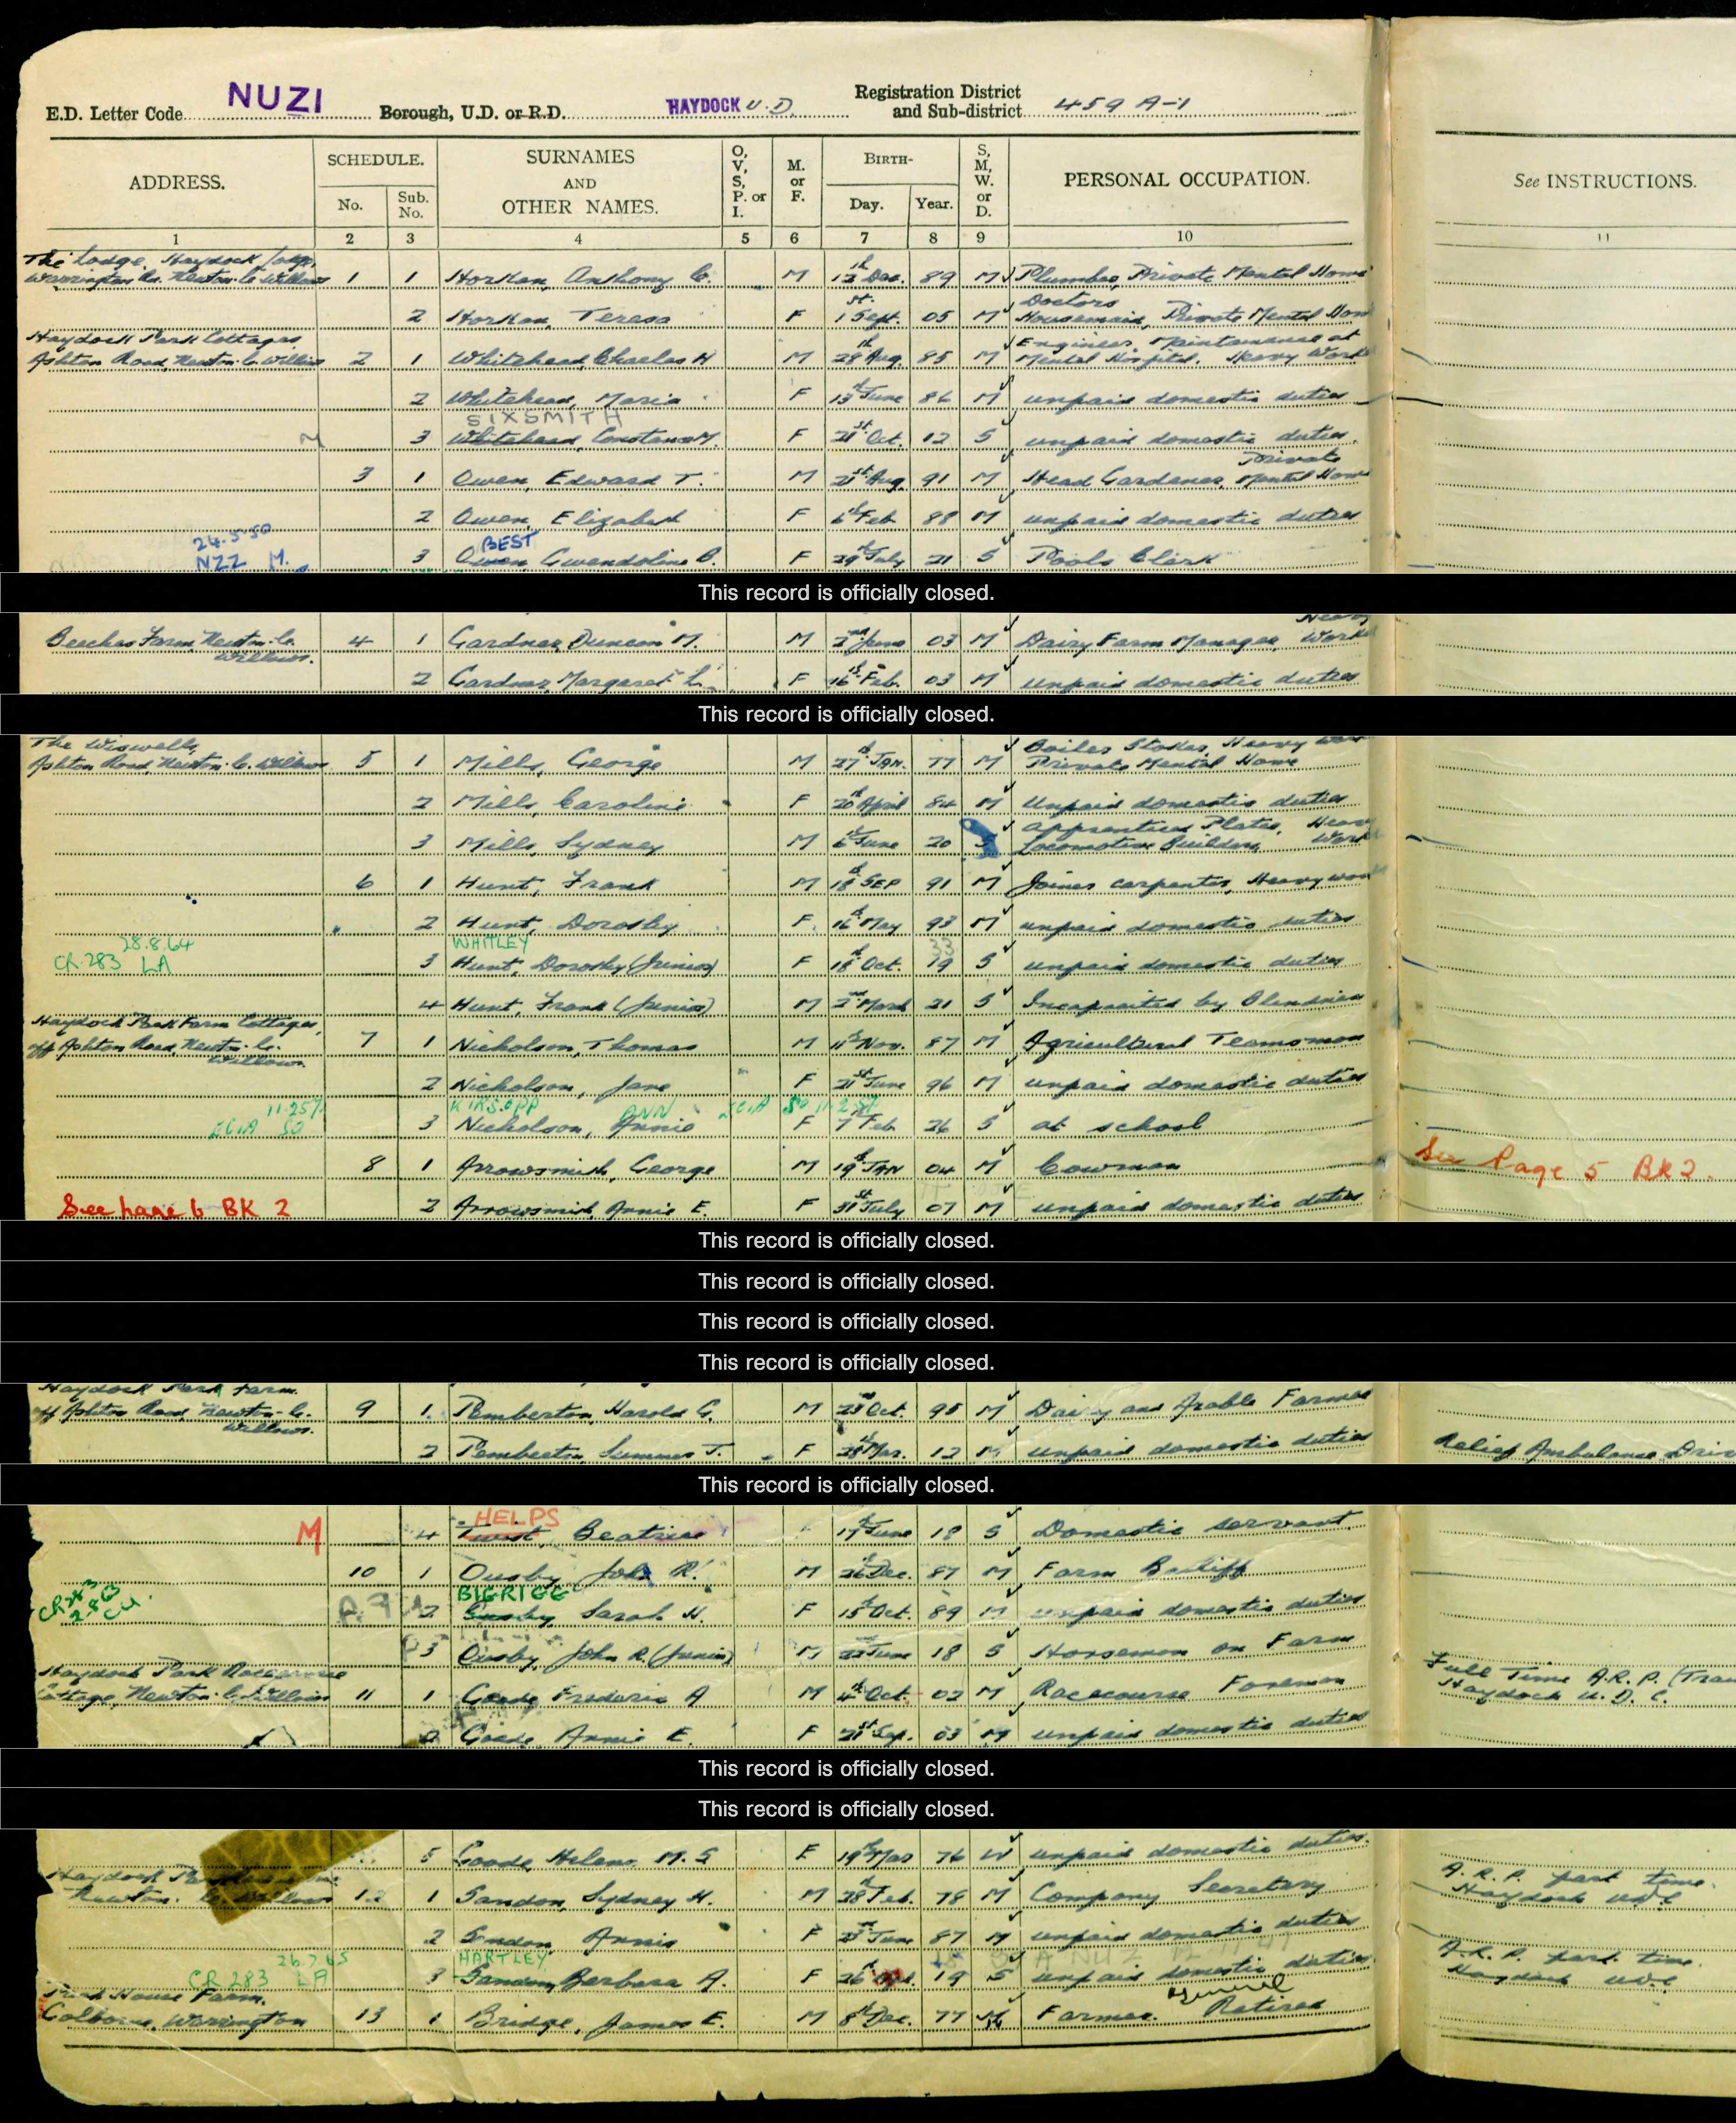 E.D. Letter Code NUZI Borough, U.D. or R.D. HAYDOCK U.D. Registration District and Sub-district 459 A-1
ADDRESS. SCHEDULE. No. Sub. No. SURNAMES AND OTHER NAMES. O, V, S, P. or I. M. or F. BIRTH- Day. Year. S, M, W. or D. PERSONAL OCCUPATION. See INSTRUCTIONS.
1 2 3 4 5 6 7 8 9 10 11
The Lodge, Haydock Lodge,
Warrington Rd. Newton-le-Willows 1 1 Horkan, Anthony C. M 13th Dec. 89 M Plumber, Private Mental Home
Doctors
2 Horkan, Teresa F 1st Sept. 05 M Housemaid, Private Mental Home
Haydock Park Cottages, Engineer Maintenance at
Ashton Road, Newton-le-Willows 2 1 Whitehead, Charles H M 28th Aug. 85 M Mental Hospital. Heavy Work
2 Whitehead, Maria F 13th June 86 M unpaid domestic duties
SIXSMITH
M 3 Whitehead, Constance M. F 21st Oct. 12 S unpaid domestic duties.
Private
3 1 Owen, Edward T. M 21st Aug. 91 M Head Gardener, Mental Home
2 Owen, Elizabeth F 6th Feb 88 M unpaid domestic duties
24.5.50 BEST
NZZ M. 3 Owen, Gwendoline C. F 29th July 21 S Pools Clerk
This record is officially closed.
Heavy
Beeches Farm, Newton-le- 4 1 Gardner, Duncan M. M 2nd June 03 M Dairy Farm Manager, Work
Willows.
2 Gardner, Margaret L. F 16th Feb. 03 M unpaid domestic duties
This record is officially closed.
The Wiswells, Boiler Stoker, Heavy Work
Ashton Road, Newton-le-Willows 5 1 Mills, George M 27th JAN. 77 M Private Mental Home
2 Mills, Caroline F 20th April 84 M Unpaid domestic duties
Apprentice Plater, Heavy
3 Mills, Sydney M 6th June 20 S Locomotive Builders, Work
6 1 Hunt, Frank M 18th SEP 91 M Joiner carpenter, Heavy work
2 Hunt, Dorothy F 16th May 93 M unpaid domestic duties
28.8.64 WHITLEY 33
CR.283 LA 3 Hunt, Dorothy (Junior) F 18th Oct. 19 S unpaid domestic duties
4 Hunt, Frank (Junior) M 2nd March 21 S Incapacited by Blindness
Haydock Park Farm Cottages,
off Ashton Road, Newton-le- 7 1 Nicholson, Thomas M 11th Nov. 87 M Agricultural Teamsman
Willows.
2 Nicholson, Jane F 21st June 96 M unpaid domestic duties
11.2.57 KIRSOPP ANN
3 Nicholson, Annie F 7th Feb 26 S at school
8 1 Arrowsmith, George M 19th JAN 04 M Cowman See Page 5 BK 2.
See page 6 BK 2 2 Arrowsmith, Annie E. F 31st July 07 M unpaid domestic duties
This record is officially closed.
This record is officially closed.
This record is officially closed.
This record is officially closed.
Haydock Park Farm.
off Ashton Road, Newton-le- 9 1. Pemberton, Harold G. M 23rd Oct. 95 M Dairy and Arable Farmer
Willows.
2 Pemberton Summer J. F 28th Mar. 12 M unpaid domestic duties Relief Ambulance Driv
This record is officially closed.
HELPS
M 4 Twist, Beatrice 17th June 18 S Domestic servant
10 1 Ousby, John R. M 26th Dec. 87 M Farm Bailiff
CR283 BIGRIGG
2.8.63 2 Ousby, Sarah H. F 15th Oct. 89 M unpaid domestic duties
3 Ousby, John R. (Junior) M 22nd June 18 S Horseman on Farm
Haydock Park Racecourse Full Time A.R.P. (Tra
Cottage, Newton-le-Willows 11 1 Goode, Frederic A M 4th Oct. 02 M Racecourse Foreman Haydock U.D.C.
2 Goode, Annie E. F 21st Sep. 03 M unpaid domestic duties
This record is officially closed.
This record is officially closed.
5 Goode, Helena, M. S F 19th Mar 76 W unpaid domestic duties.
Haydock A.R.P. part time.
Newton-le-Willows 12 1 Sandon, Sydney H. M 28th Feb. 78 M Company Secretary Haydock UDC
2 Sandon Annie F 23rd June 87 M unpaid domestic duties
26.7.65 HARTLEY A.R.P. part time.
CR 283 LA 3 Sandon, Barbara A. F 26th 19 S unpaid domestic duties. Haydock UDC
House Farm, General
Golborne, Warrington 13 1 Bridge, James E. M 8th Dec. 77 M Farmer. Retired